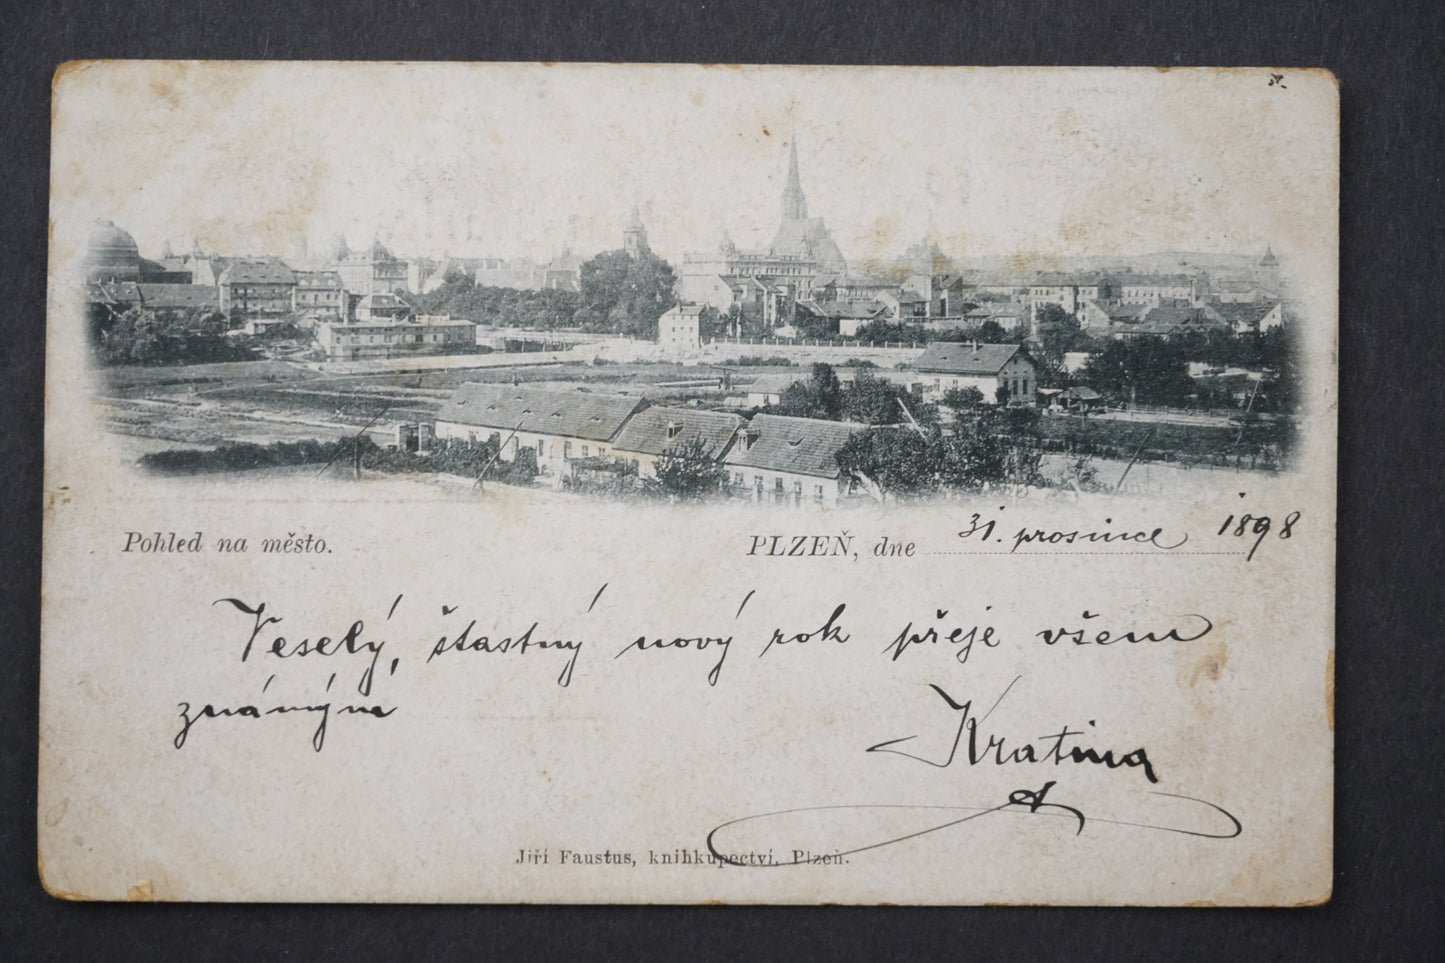 Pohled na město.
PLZEŇ, dne 31. prosince 1898
Veselý, šťastný nový rok přeje všem
známým
Kratina
Jiří Faustus, knihkupectví, Plzeň.